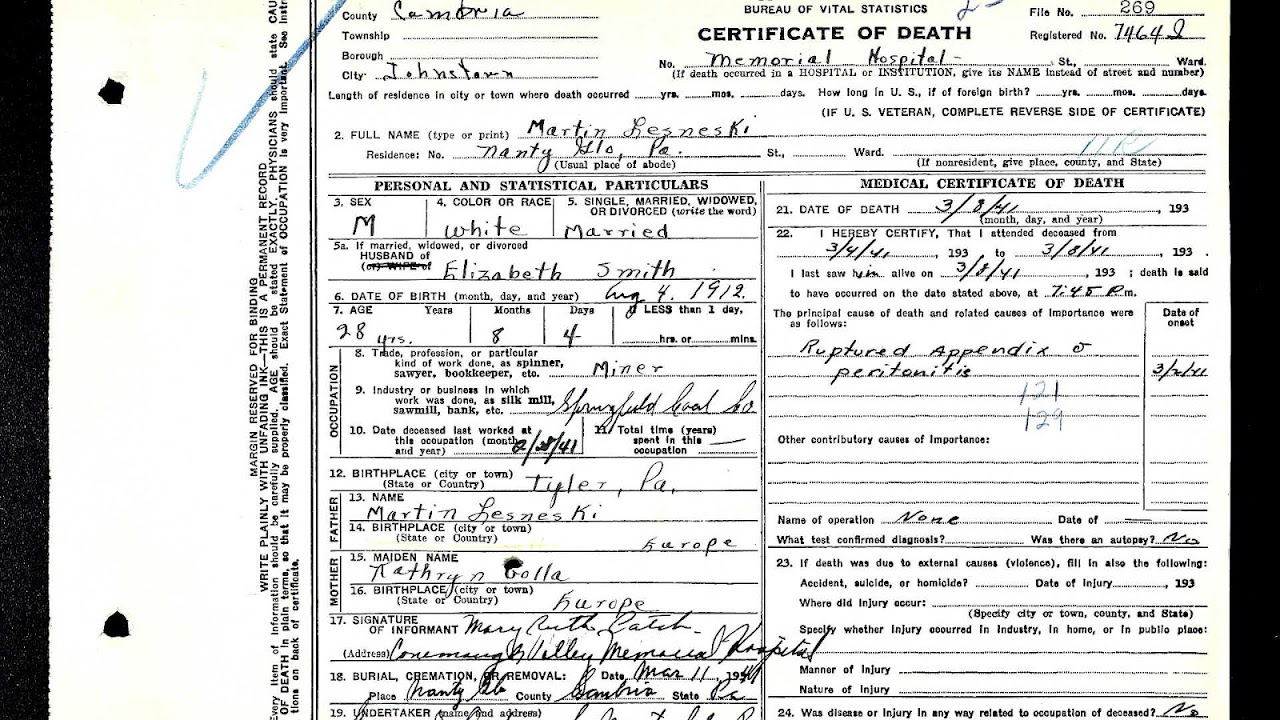 County Cambria
BUREAU OF VITAL STATISTICS
File No. 269
Township
CERTIFICATE OF DEATH
Registered No. 7464
Borough
City Johnstown
No. Memorial Hospital St., Ward.
(If death occurred in a HOSPITAL or INSTITUTION, give its NAME instead of street and number)
Length of residence in city or town where death occurred yrs. mos. days. How long in U. S., if of foreign birth? yrs. mos. days.
(IF U. S. VETERAN, COMPLETE REVERSE SIDE OF CERTIFICATE)
2. FULL NAME (type or print) Martin Lesneski
Residence: No. Nanty Glo, Pa. St., Ward.
(Usual place of abode) (If nonresident, give place, county, and State)
PERSONAL AND STATISTICAL PARTICULARS
3. SEX M
4. COLOR OR RACE White
5. SINGLE, MARRIED, WIDOWED, OR DIVORCED (write the word) Married
5a. If married, widowed, or divorced
HUSBAND of
(or) WIFE of Elizabeth Smith
6. DATE OF BIRTH (month, day, and year) Aug 4. 1912.
7. AGE Years Months Days If LESS than 1 day,
28 yrs. 8 4 hrs. or mins.
OCCUPATION
8. Trade, profession, or particular
kind of work done, as spinner,
sawyer, bookkeeper, etc. Miner
9. Industry or business in which
work was done, as silk mill,
sawmill, bank, etc. Springfield Coal Co
10. Date deceased last worked at
this occupation (month
and year) 2/28/41
11. Total time (years)
spent in this
occupation
12. BIRTHPLACE (city or town) Tyler, Pa.
(State or Country)
FATHER
13. NAME
Martin Lesneski
14. BIRTHPLACE (city or town)
(State or Country) Europe
MOTHER
15. MAIDEN NAME
Kathryn Golla
16. BIRTHPLACE (city or town)
(State or Country) Europe
17. SIGNATURE
OF INFORMANT Mary Ruth
(Address) Conemaugh Valley Memorial Hospital
18. BURIAL, CREMATION, OR REMOVAL: Date Mar 11 1941
Place Nanty Glo County Cambria State Pa
19. UNDERTAKER (name and address)
MEDICAL CERTIFICATE OF DEATH
21. DATE OF DEATH 3/8/41, 193
(month, day, and year)
22. I HEREBY CERTIFY, That I attended deceased from
3/4/41, 193 to 3/8/41, 193 .
I last saw him alive on 3/8/41, 193 ; death is said
to have occurred on the date stated above, at 7:45 P.m.
The principal cause of death and related causes of importance were
as follows:
Date of
onset
Ruptured Appendix c
peritonitis 3/2/41
121
129
Other contributory causes of importance:
Name of operation None Date of —
What test confirmed diagnosis? Was there an autopsy? No
23. If death was due to external causes (violence), fill in also the following:
Accident, suicide, or homicide? Date of injury , 193
Where did injury occur:
(Specify city or town, county, and State)
Specify whether injury occurred in industry, in home, or in public place:
Manner of injury
Nature of injury
24. Was disease or injury in any way related to occupation of deceased? No
MARGIN RESERVED FOR BINDING
WRITE PLAINLY WITH UNFADING INK—THIS IS A PERMANENT RECORD
Every item of information should be carefully supplied. AGE should be stated EXACTLY. PHYSICIANS should state CAU
OF DEATH in plain terms, so that it may be properly classified. Exact Statement of OCCUPATION is very important. See instr
tions on back of certificate.